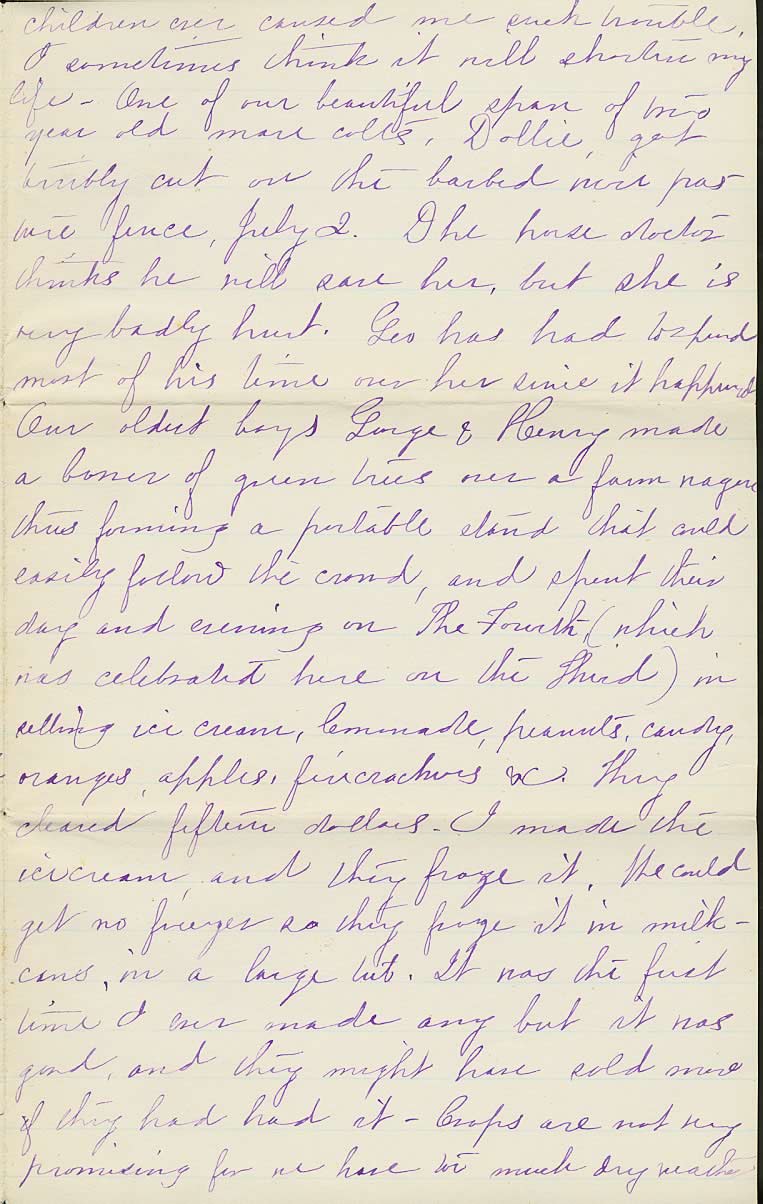 children ever caused me such trouble.
I sometimes think it will shorten my
life - One of our beautiful span of two
year old mare colts, Dollie, got
terribly cut on the barbed wire pas
ture fence, July 2. The horse doctor
thinks he will save her, but she is
very badly hurt. Geo has had to spend
most of his time over her since it happened
Our oldest boys George & Henry made
a bower of green trees over a farm wagon
thus forming a portable stand that could
easily follow the crowd, and spent their
day and evening on The Fourth, (which
was celebrated here on the Third) in
selling ice cream, lemonade, peanuts, candy,
oranges, apples, firecrackers &c. They
cleared fifteen dollars - I made the
icecream, and they froze it. We could
get no freezer so they froze it in milk-
cans, in a large tub. It was the first
time I ever made any but it was
good, and they might have sold more
if they had had it - Crops are not very
promising for we have too much dry weather